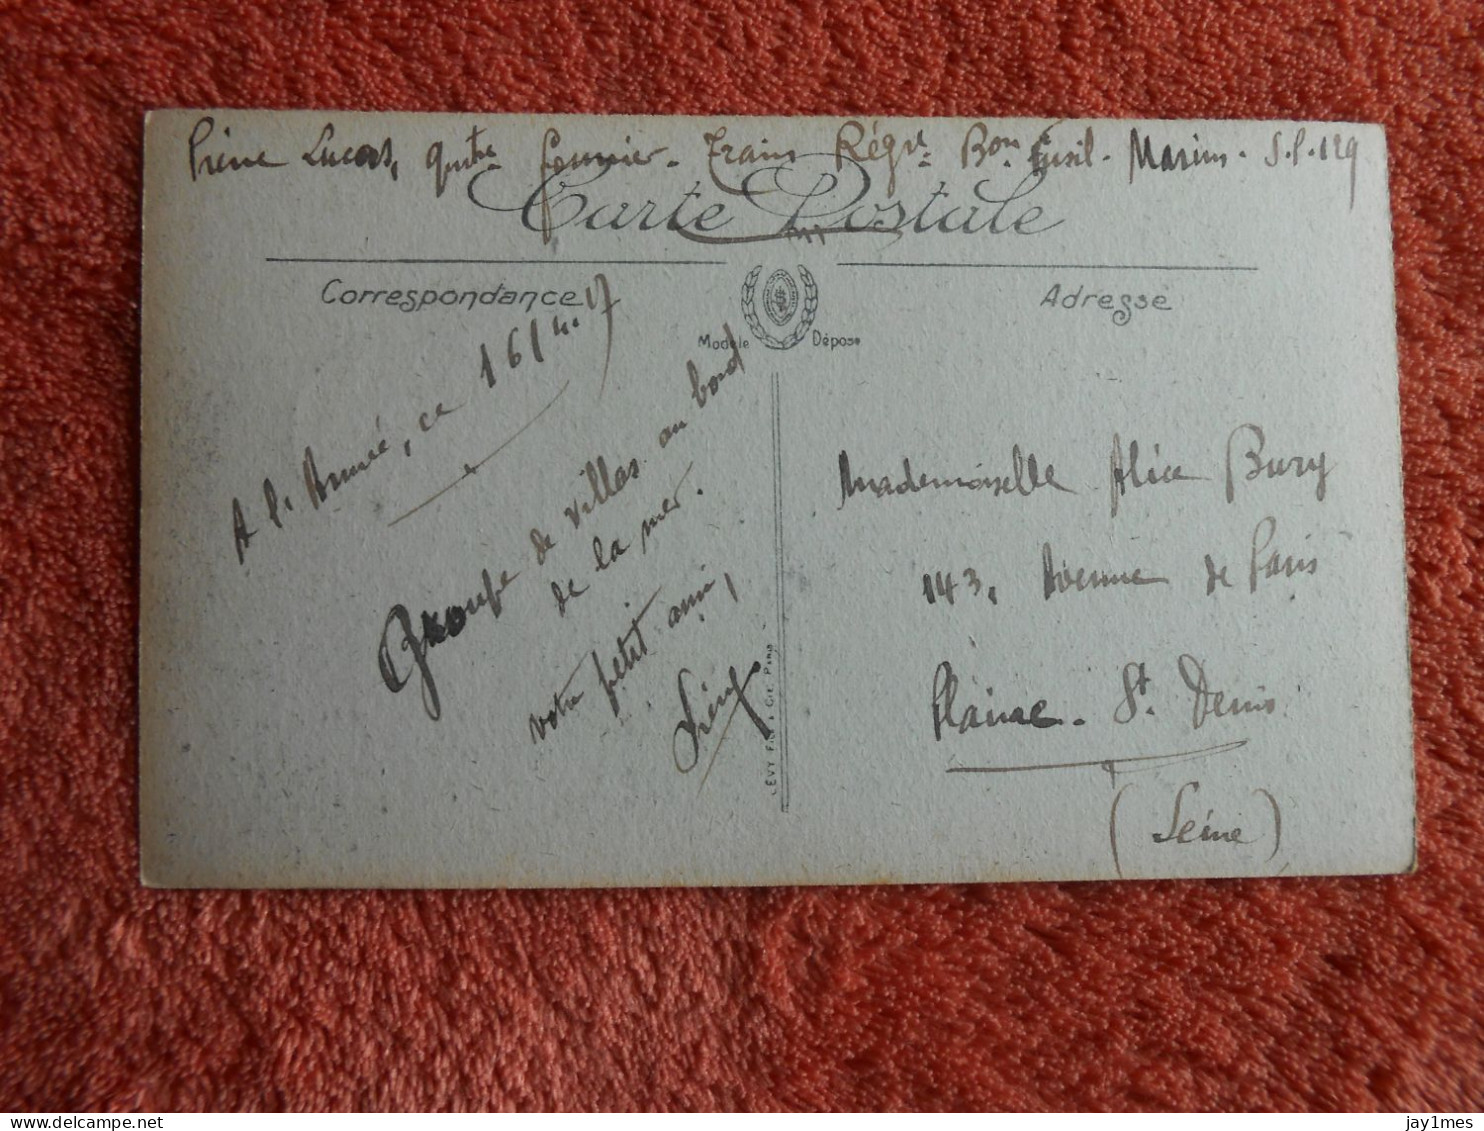 Pierre Lucas, Qutre fermier - Train Régt - Bon Fusil. Marins. S.P. 129
Carte Postale
Correspondance
Adresse
Modèle Déposé
A l'Armée, ce 16/4.17
Groupe de villas au bord
de la mer.
votre petit ami,
LÉVY FILS & Cie. PARIS
Mademoiselle Alice Bury
143, Avenue de Paris
Plaine - St. Denis
(Seine)
jay1mes